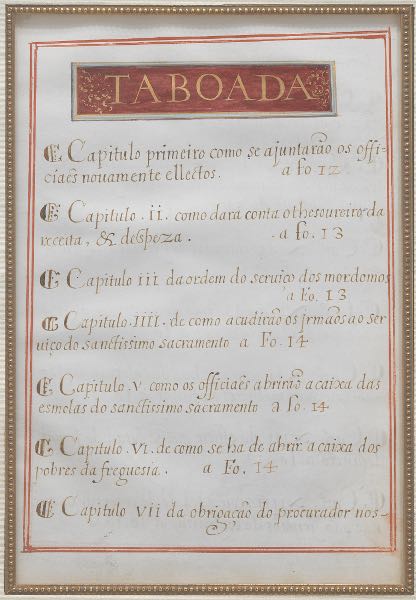 TABOADA
Capitulo primeiro como se ajuntarão os offi-
ciaẽs nouamente ellectos. a fo. 12
Capitulo . II. como dara conta o thesoureiro da
receita, & despeza. a fo. 13
Capitulo III da ordem do seruiço dos mordomos
a Fo. 13
Capitulo .IIII. de como acudirão os jrmãos ao ser
uiço do sanctissimo sacramento a Fo. 14
Capitulo .V. como os officiaẽs abrirão a caixa das
esmolas do sanctissimo sacramento a fo. 14
Capitulo .VI. de como se ha de abrir a caixa dos
pobres da freguesia. a Fo. 14
Capitulo VII da obrigação do procurador nos-